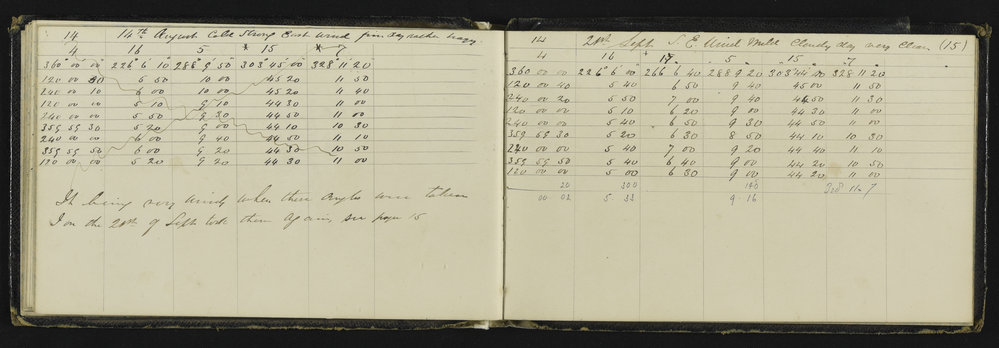 14 14th August Cold Strong East wind fine day rather hazy
4 16 5 * 15 * 7
360 00 00 226 6 10 288 9 50 303 45 00 328 11 20
120 00 20 6 50 10 00 45 20 11 50
240 00 10 6 00 10 00 45 20 11 40
120 00 00 5 10 9 10 44 30 11 00
240 00 00 5 50 9 30 44 50 11 00
359 59 30 5 20 9 00 44 10 10 30
240 00 00 6 00 9 40 44 50 11 10
359 59 50 6 00 9 20 44 30 10 50
120 00 00 5 20 9 20 44 30 11 00
It being very windy when these angles were taken
I on the 21st of Septr took them again, see page 15
14 21st Septr S.E. Wind Mild Cloudy day very clear (15)
4 16 + 17 5 15 7
360 00 00 226 6 00 266 6 40 288 9 20 303 44 50 328 11 20
120 00 40 5 40 6 50 9 40 45 00 11 50
240 00 20 5 50 7 00 9 40 44 50 11 30
120 00 00 5 10 6 20 9 00 44 30 11 00
240 00 00 5 40 6 50 9 30 44 50 11 00
359 59 30 5 20 6 30 8 50 44 10 10 30
240 00 00 5 40 7 00 9 20 44 40 11 10
359 59 50 5 40 6 40 9 00 44 20 10 50
120 00 00 5 00 6 30 9 00 44 20 11 00
20 300 140 328 11 7
00 02 5 33 9 16